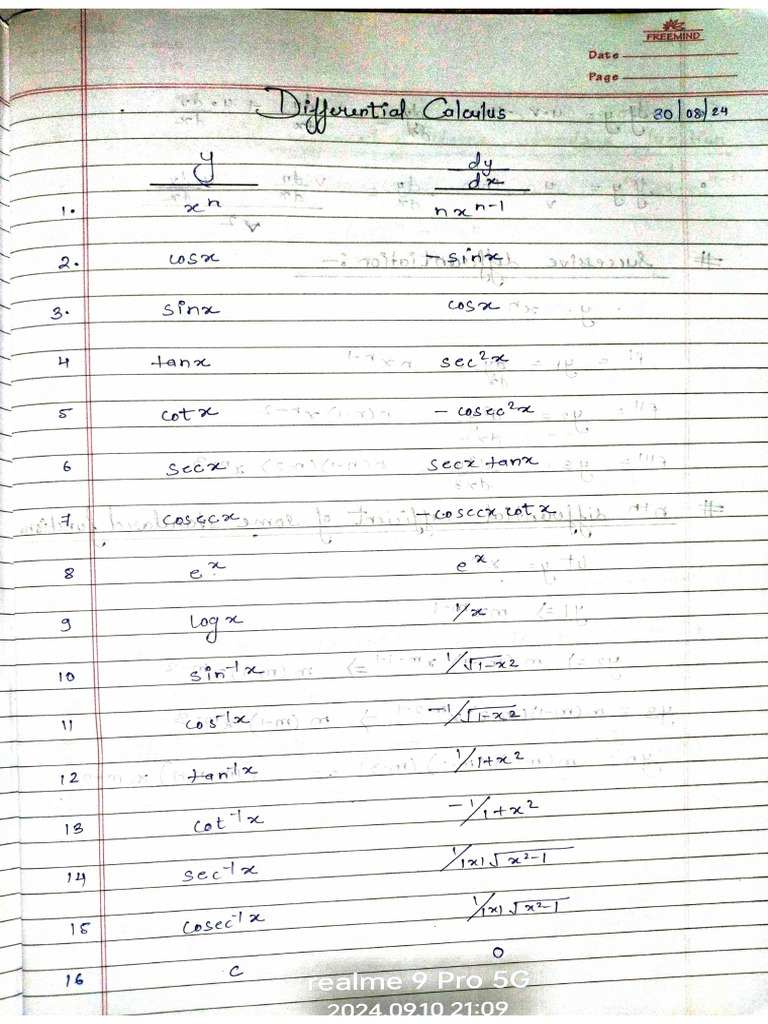 FREEMIND
Date
Page
Differential Calculus 30/08/24
y dy/dx
1. xⁿ nxⁿ⁻¹
2. cosx - sinx
3. sinx cosx
4 tanx sec²x
5 cotx - cosec²x
6 secx secx tanx
7 cosecx - cosecx cotx
8 eˣ eˣ
9 logx 1/x
10 sin⁻¹x 1/√1-x²
11 cos⁻¹x -1/√1-x²
12 tan⁻¹x 1/1+x²
13 cot⁻¹x -1/1+x²
14 sec⁻¹x 1/|x|√x²-1
15 cosec⁻¹x 1/|x|√x²-1
16 c 0
realme 9 Pro 5G
2024.09.10 21:09